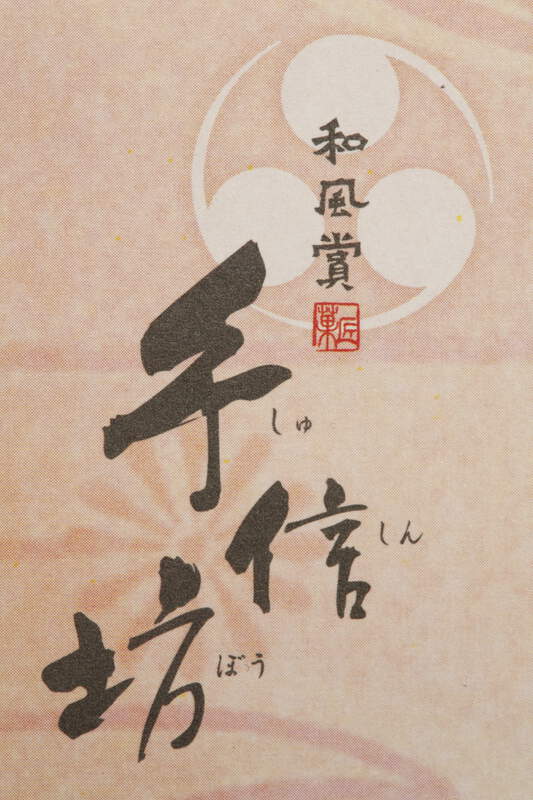 和風賞
菓匠
手信坊
しゅ
しん
ぼう